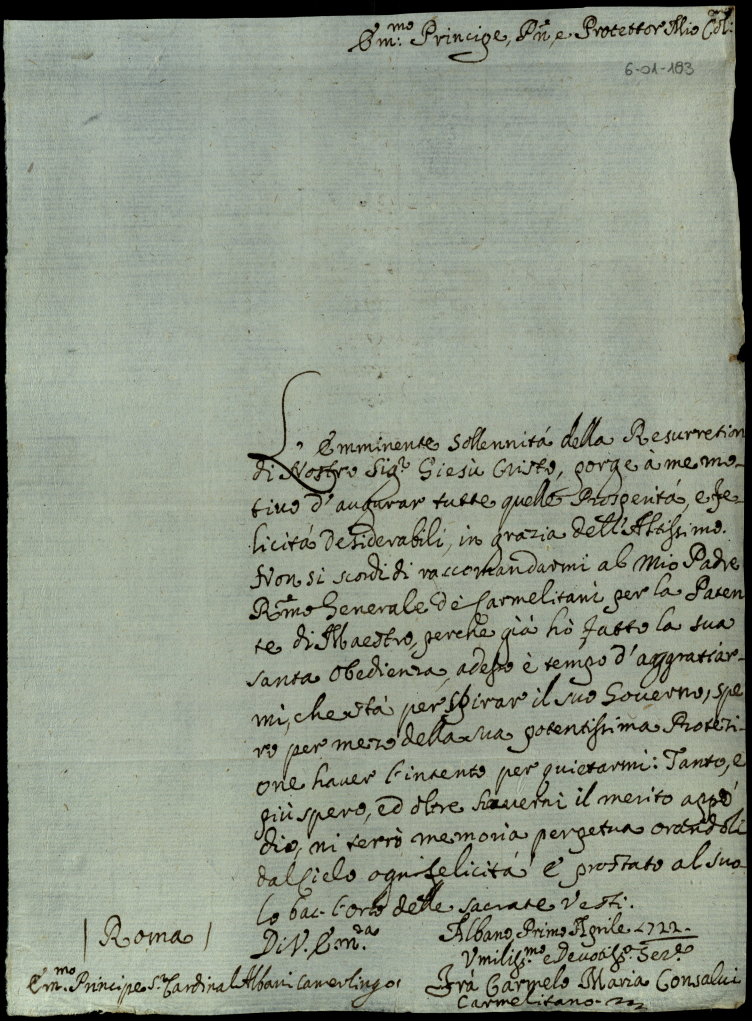 Em.mo Principe, Pñ, e Protettor Mio Col:
6-01-183
L'Emminente Sollennitá della Resurretion
di Nostro Sig.r Giesù Cristo, porge à me mo-
tivo d'augurar tutte quelle Prosperitá, e Fe-
licitá desiderabili, in grazia dell'Altissimo.
Non si scordi di raccomandarmi al Mio Padre
R͞mo Generale dè Carmelitani per la Paten
te di Maestro, perche già hò fatto la sua
santa Obedienza, adesso è tempo d'aggratiar-
mi, che stá per spirar il suo Governo, spe
ro per mezo della sua potentissima Protezi-
one haver l'intento per quietarmi: Tanto, e
più spero, ed oltre haverni il merito appó
dio, ni terrò memoria perpetua orandoli
dal Cielo ogni felicitá e prostato al suo
lo bac. l'orlo delle sacrate Vesti.
Di V. Em.za
Albano Primo Aprile 1722.
| Roma |
Umiliss.mo e Devotiss.o Ser.e
Em.mo Principe S.r Cardinal Albani Camerlingo,
Frá Carmelo Maria Consalvi
Carmelitano